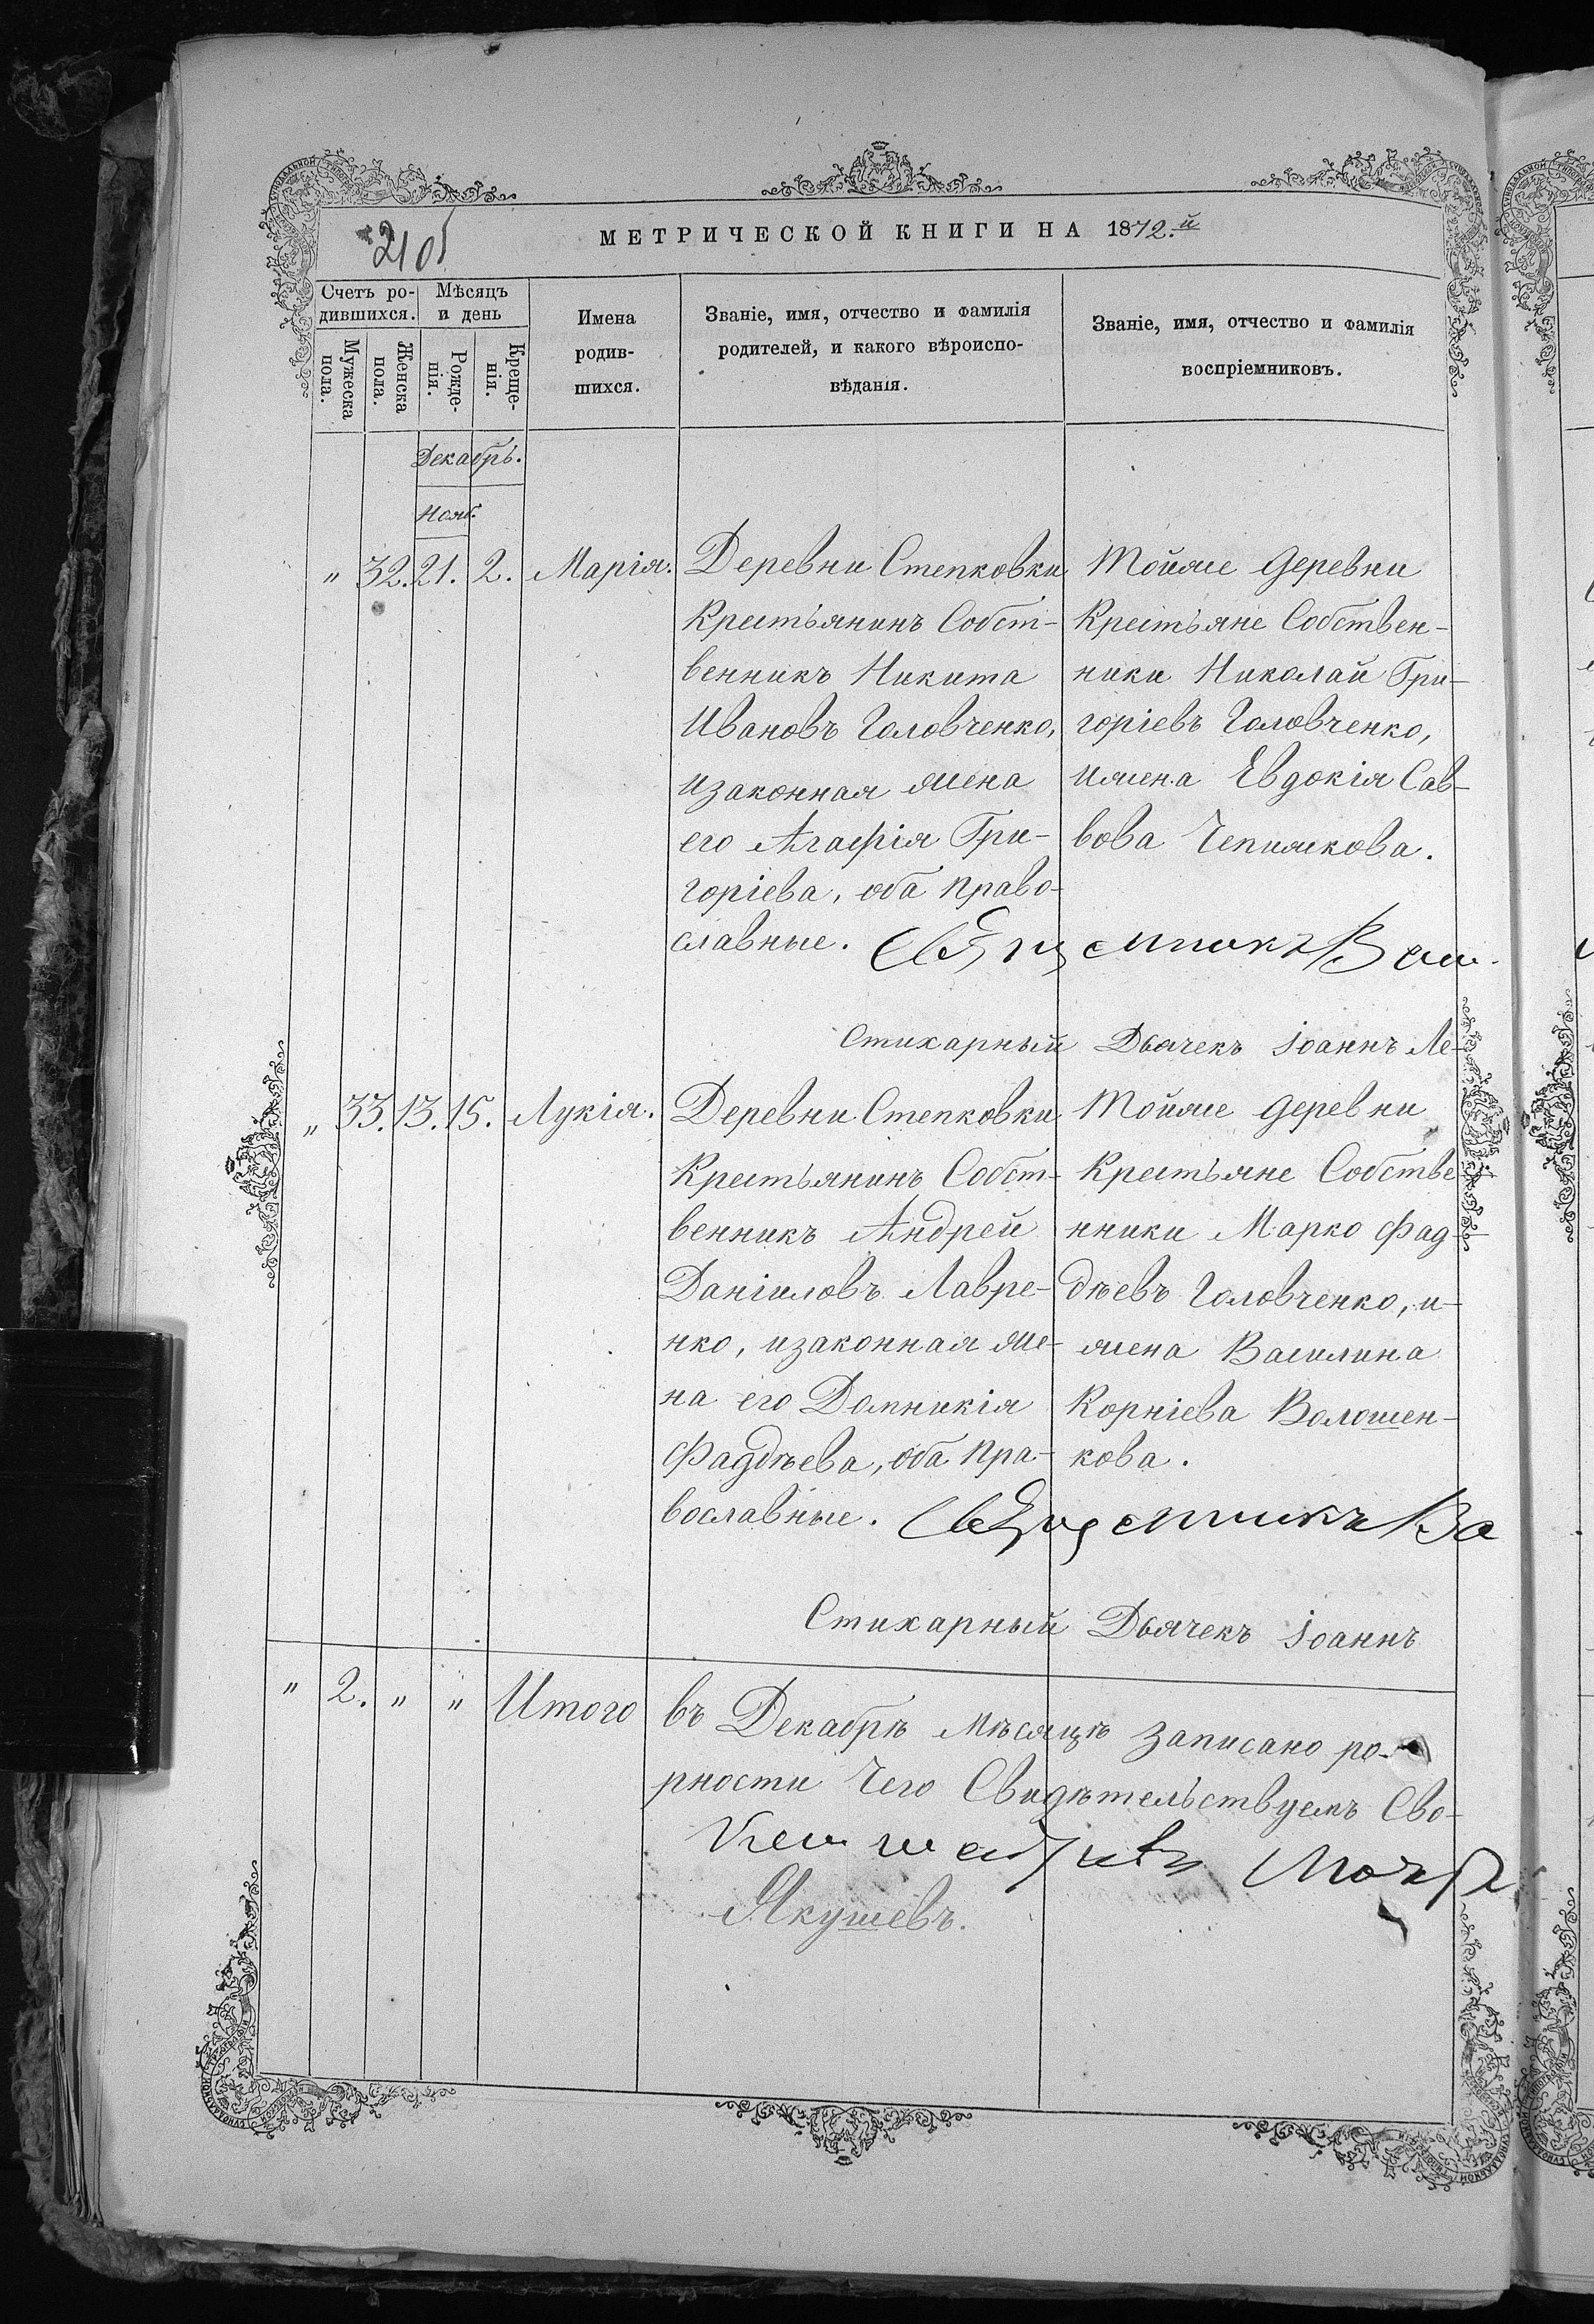 210б
МЕТРИЧЕСКОЙ КНИГИ НА 1872.й
Счетъ ро-
дившихся.
Мѣсяцъ
и день
Мужеска
пола.
Женска
пола.
Рожде-
нія.
Креще-
нія.
Имена
родив-
шихся.
Званіе, имя, отчество и фамилія
родителей, и какого вѣроиспо-
вѣданія.
Званіе, имя, отчество и фамилія
воспріемниковъ.
Декабрь.
Нояб.
„ 32. 21. 2. Марія.
Деревни Степковки
Крестьянинъ Собст-
венникъ Никита
Ивановъ Головченко,
изаконная жена
его Агафія Гри-
горіева, оба право-
славные.
Тойже деревни
Крестьяне Собствен-
ники Николай Гри-
горіевъ Головченко,
ижена Евдокія Сав-
вова Чепижкова.
Священникъ
Стихарный Дьячекъ Іоаннъ Ле-
„ 33. 13. 15. Лукія.
Деревни Степковки
Крестьянинъ Собст-
венникъ Андрей
Даніиловъ Лавре-
нко, изаконная же-
на его Домникія
Фаддѣева, оба пра-
вославные.
Тойже деревни
Крестьяне Собстве
нники Марко Фад-
дѣевъ Головченко, и-
жена Василина
Корніева Волошен-
кова.
Священникъ Ва
Стихарный Дьячекъ Іоаннъ
„ 2. „ „ Итого въ Декабрѣ мѣсяцѣ записано ро-
рности чего Свидѣтельствуемъ Сво-
Якушевъ.